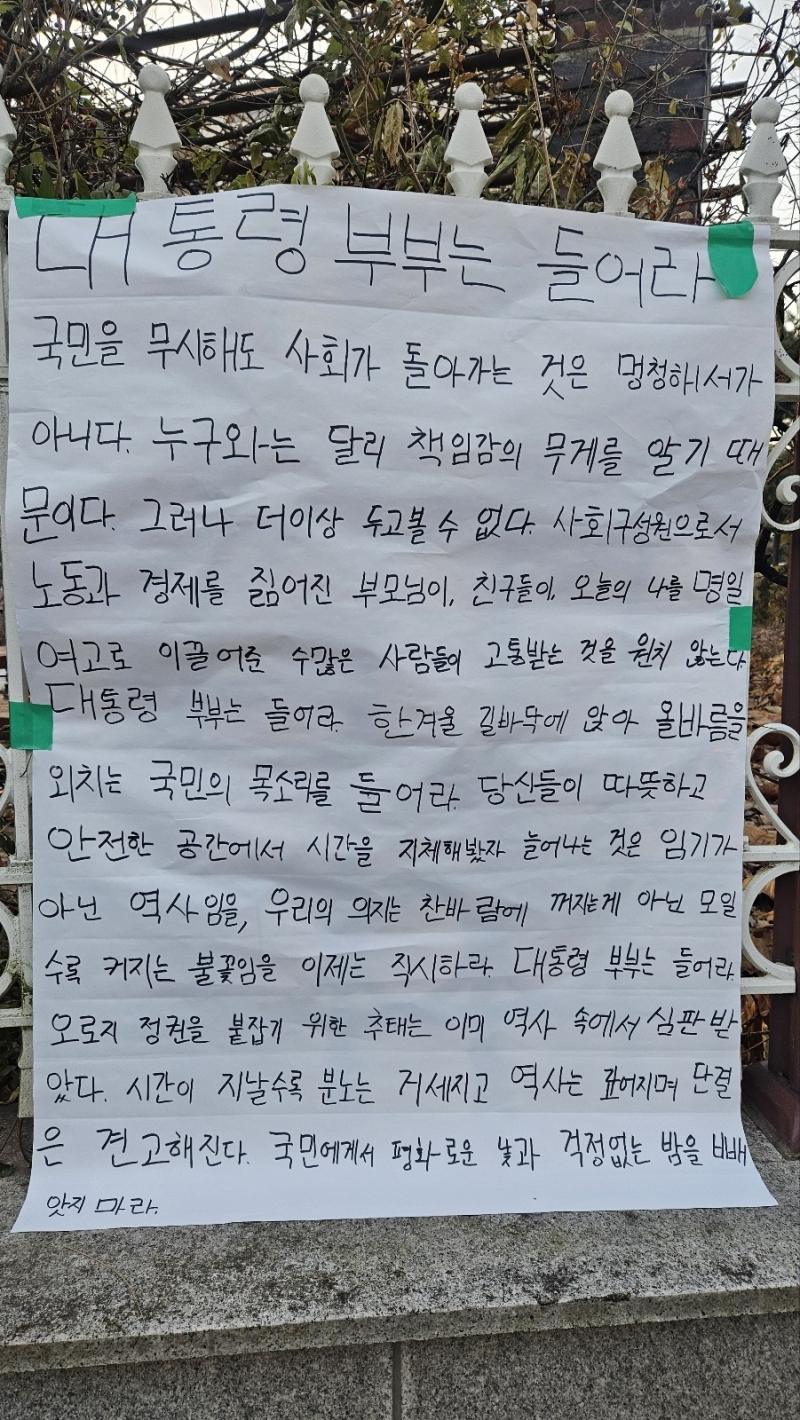 대통령 부부는 들어라
국민을 무시해도 사회가 돌아가는 것은 멍청해서가
아니다. 누구와는 달리 책임감의 무게를 알기 때
문이다. 그러나 더이상 두고볼 수 없다. 사회구성원으로서
노동과 경제를 짊어진 부모님이, 친구들이, 오늘의 나를 명일
여고로 이끌어준 수많은 사람들이 고통받는 것을 원치 않는다
대통령 부부는 들어라. 한겨울 길바닥에 앉아 올바름을
외치는 국민의 목소리를 들어라. 당신들이 따뜻하고
안전한 공간에서 시간을 지체해봤자 늘어나는 것은 임기가
아닌 역사임을, 우리의 의지는 찬바람에 꺼지는게 아닌 모일
수록 커지는 불꽃임을 이제는 직시하라. 대통령 부부는 들어라.
오로지 정권을 붙잡기 위한 추태는 이미 역사 속에서 심판받
았다. 시간이 지날수록 분노는 거세지고 역사는 길어지며 단결
은 견고해진다. 국민에게서 평화로운 낮과 걱정없는 밤을 빼
앗지 마라.